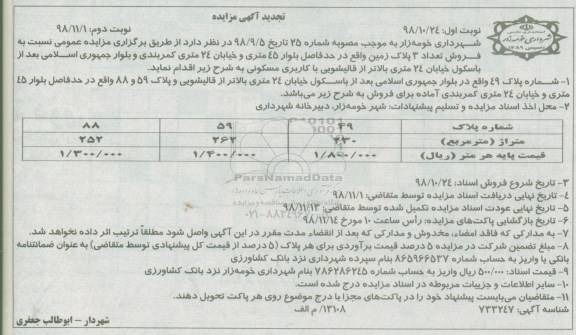 تجدید آگهی مزایده
نوبت اول: ۹۸/۱۰/۲۴
نوبت دوم: ۹۸/۱۱/۱
شهرداری خومه‌زار به موجب مصوبه شماره ۲۵ تاریخ ۹۸/۹/۵ در نظر دارد از طریق برگزاری مزایده عمومی نسبت به
فروش تعداد ۳ پلاک زمین واقع در حدفاصل بلوار ۴۵ متری و خیابان ۲۴ متری کمربندی و بلوار جمهوری اسلامی بعد از
باسکول خیابان ۲۴ متری بالاتر از قالیشویی با کاربری مسکونی به شرح زیر اقدام نماید.
۱- شماره پلاک ۴۹ واقع در بلوار جمهوری اسلامی بعد از باسکول خیابان ۲۴ متری بالاتر از قالیشویی و پلاک ۵۹ و ۸۸ واقع در حدفاصل بلوار ۴۵
متری و خیابان ۲۴ متری کمربندی آماده برای فروش به شرح زیر می‌باشد.
۲- محل اخذ اسناد مزایده و تسلیم پیشنهادات: شهر خومه‌زار، دبیرخانه شهرداری
شماره پلاک ۴۹ ۵۹ ۸۸
متراژ (مترمربع) ۲۳۰ ۲۶۲ ۲۵۲
قیمت پایه هر متر (ریال) ۱/۸۰۰/۰۰۰ ۱/۴۰۰/۰۰۰ ۱/۳۰۰/۰۰۰
ParsNamadData
۳- تاریخ شروع فروش اسناد: ۹۸/۱۰/۲۴
۴- تاریخ نهایی دریافت اسناد مزایده توسط متقاضی: ۹۸/۱۱/۱
۵- تاریخ نهایی عودت اسناد مزایده تکمیل شده توسط متقاضی: ۹۸/۱۱/۱۳
۶- تاریخ بازگشایی پاکت‌های مزایده: رأس ساعت ۱۰ مورخ ۹۸/۱۱/۱۴
۷- به مدارکی که فاقد امضاء، مخدوش و مدارکی که بعد از انقضاء مدت مقرر در این آگهی واصل شود مطلقاً ترتیب اثر داده نخواهد شد.
۸- مبلغ تضمین شرکت در مزایده ۵ درصد قیمت برآوردی برای هر پلاک (۵ درصد از قیمت کل پیشنهادی توسط متقاضی) به عنوان ضمانتنامه
بانکی یا واریز به حساب شماره ۸۶۵۹۶۶۵۳۷ بنام سپرده شهرداری نزد بانک کشاورزی
۹- قیمت اسناد: ۵۰۰/۰۰۰ ریال واریز به حساب شماره ۷۸۶۲۸۶۲۴۵ بنام شهرداری خومه‌زار نزد بانک کشاورزی
۱۰- سایر اطلاعات و جزییات مربوطه در اسناد مزایده درج شده است.
۱۱- متقاضیان می‌بایست پیشنهاد خود را در پاکت‌های مجزا با درج موضوع روی هر پاکت تحویل دهند.
شناسه آگهی: ۷۳۳۲۴۷
۱۳۱۰۸/ م الف
شهردار - ابوطالب جعفری